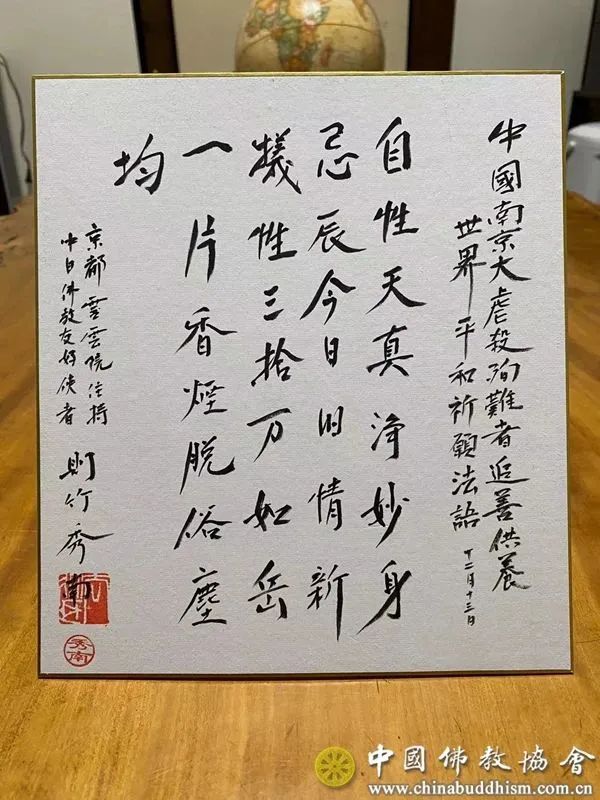 中國南京大虐殺殉難者追善供養
世界平和祈願法語 十二月十三日
自性天真浄妙身
忌辰今日旧情新
犠性三拾万如岳
一片香煙脱俗塵
均
京都 霊雲院住持
中日佛教友好使者
則竹秀南
秀南
中國佛教協會
www.chinabuddhism.com.cn